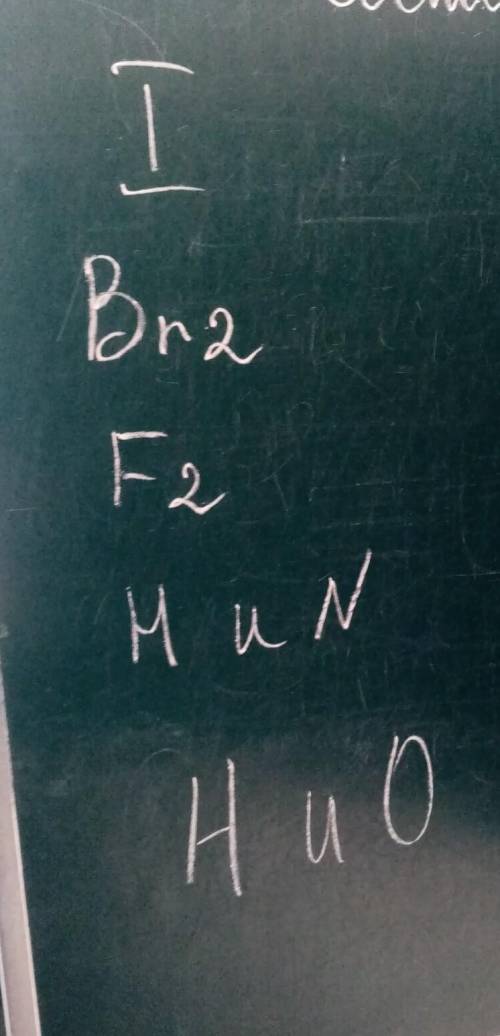 I
Br2
F2
H и N
H и O